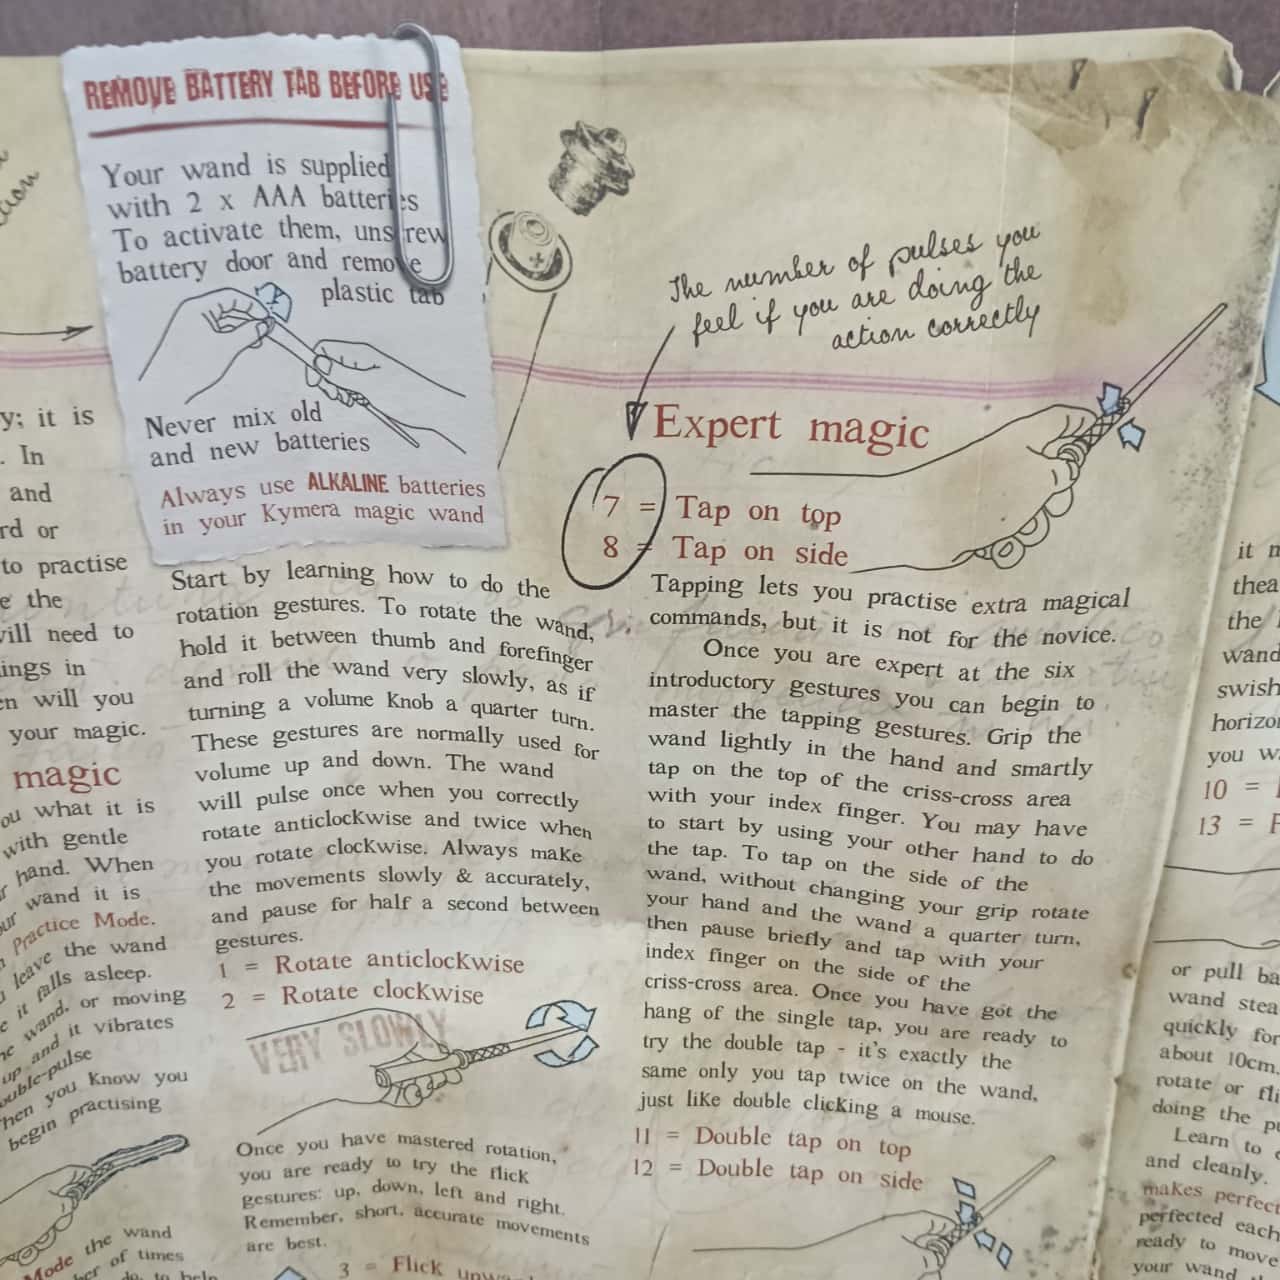 REMOVE BATTERY TAB BEFORE USE
Your wand is supplied
with 2 x AAA batteries
To activate them, unscrew
battery door and remove
plastic tab
Never mix old
and new batteries
Always use ALKALINE batteries
in your Kymera magic wand
y; it is
. In
and
rd or
to practise
e the
will need to
ings in
en will you
your magic.
magic
ou what it is
with gentle
r hand. When
ur wand it is
Practice Mode.
leave the wand
e it falls asleep.
he wand, or moving
up and it vibrates
ouble-pulse
hen you know you
begin practising
Mode the wand
ber of times
do, to help
Start by learning how to do the
rotation gestures. To rotate the wand,
hold it between thumb and forefinger
and roll the wand very slowly, as if
turning a volume knob a quarter turn.
These gestures are normally used for
volume up and down. The wand
will pulse once when you correctly
rotate anticlockwise and twice when
you rotate clockwise. Always make
the movements slowly & accurately,
and pause for half a second between
gestures.
1 = Rotate anticlockwise
2 = Rotate clockwise
VERY SLOWLY
Once you have mastered rotation,
you are ready to try the flick
gestures: up, down, left and right.
Remember, short, accurate movements
are best.
3 = Flick upwa
The number of pulses you
feel if you are doing the
action correctly
Expert magic
7 = Tap on top
8 = Tap on side
Tapping lets you practise extra magical
commands, but it is not for the novice.
Once you are expert at the six
introductory gestures you can begin to
master the tapping gestures. Grip the
wand lightly in the hand and smartly
tap on the top of the criss-cross area
with your index finger. You may have
to start by using your other hand to do
the tap. To tap on the side of the
wand, without changing your grip rotate
your hand and the wand a quarter turn,
then pause briefly and tap with your
index finger on the side of the
criss-cross area. Once you have got the
hang of the single tap, you are ready to
try the double tap - it's exactly the
same only you tap twice on the wand,
just like double clicking a mouse.
11 = Double tap on top
12 = Double tap on side
it m
thea
the
wand
swish
horizon
you w
10 =
13 =
or pull ba
wand stea
quickly for
about 10cm.
rotate or fli
doing the pu
Learn to
and cleanly.
makes perfect
perfected each
ready to move
your wand